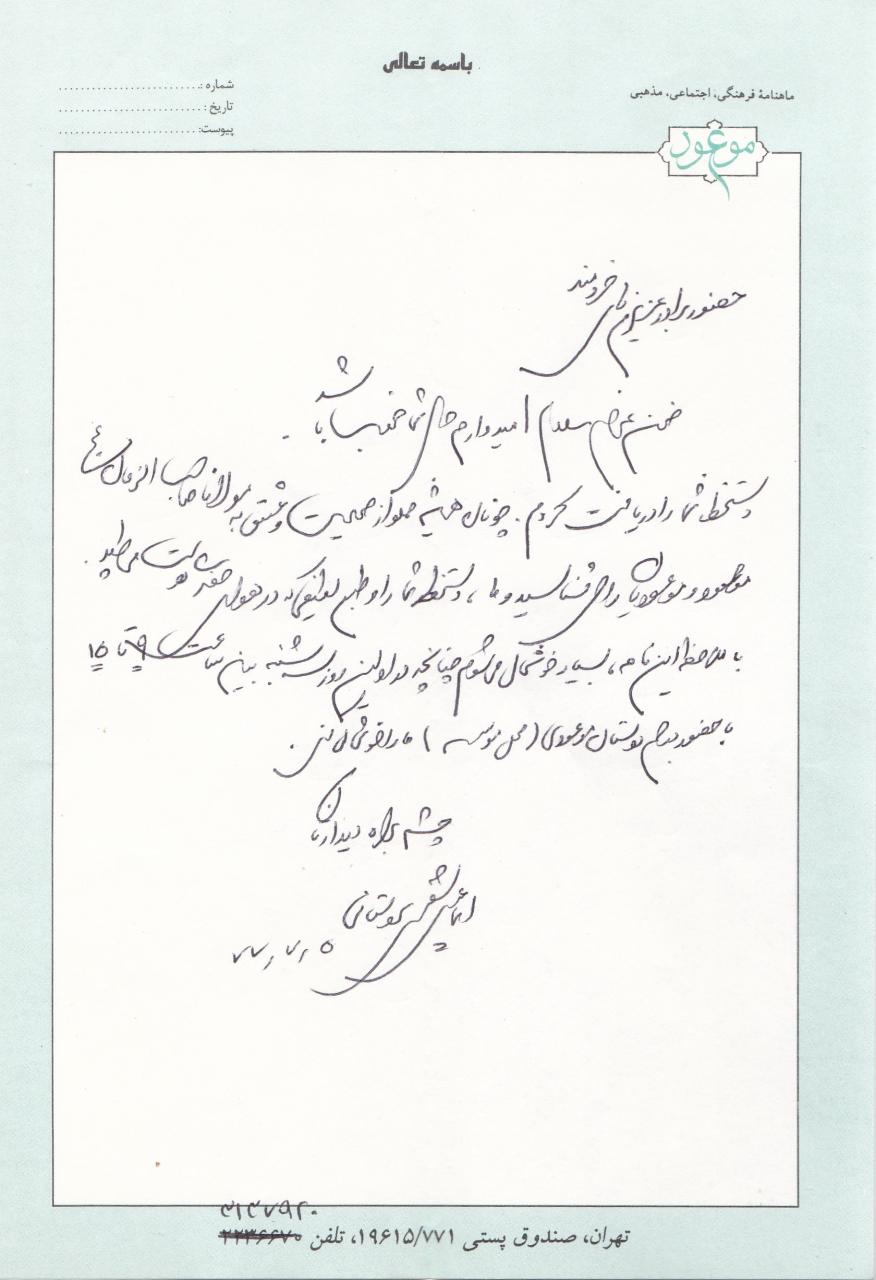 باسمه تعالی
ماهنامهٔ فرهنگی، اجتماعی، مذهبی
موعود
شماره :
تاریخ :
پیوست:
حضور برادر عزیزم آقای خردمند
ضمن عرض سلام امیدوارم حال شما خوب باشد
دستخط شما را دریافت کردم. چونان همیشه مملو از صمیمیت و عشق به مولانا صاحب الزمان
موعود و موعودیان را می‌شناسید و ما، دستخط شما را و طبع لطیفی که در هوای می‌طپد.
با ملاحظه این نامه، بسیار خوشحال می‌شوم چنانچه در اولین روز سه شنبه بین ساعت ۹ تا ۱۵
با حضور در جمع دوستان موعودی (محل موسسه) ما را خوشحال کنی.
چشم براه دیدارتان
اسماعیل شفیعی سروستانی
۷۷,۷,۵
۳۱۳۷۹۲۰
تهران، صندوق پستی ۱۹۶۱۵/۷۷۱، تلفن ۲۲۳۶۶۷۰